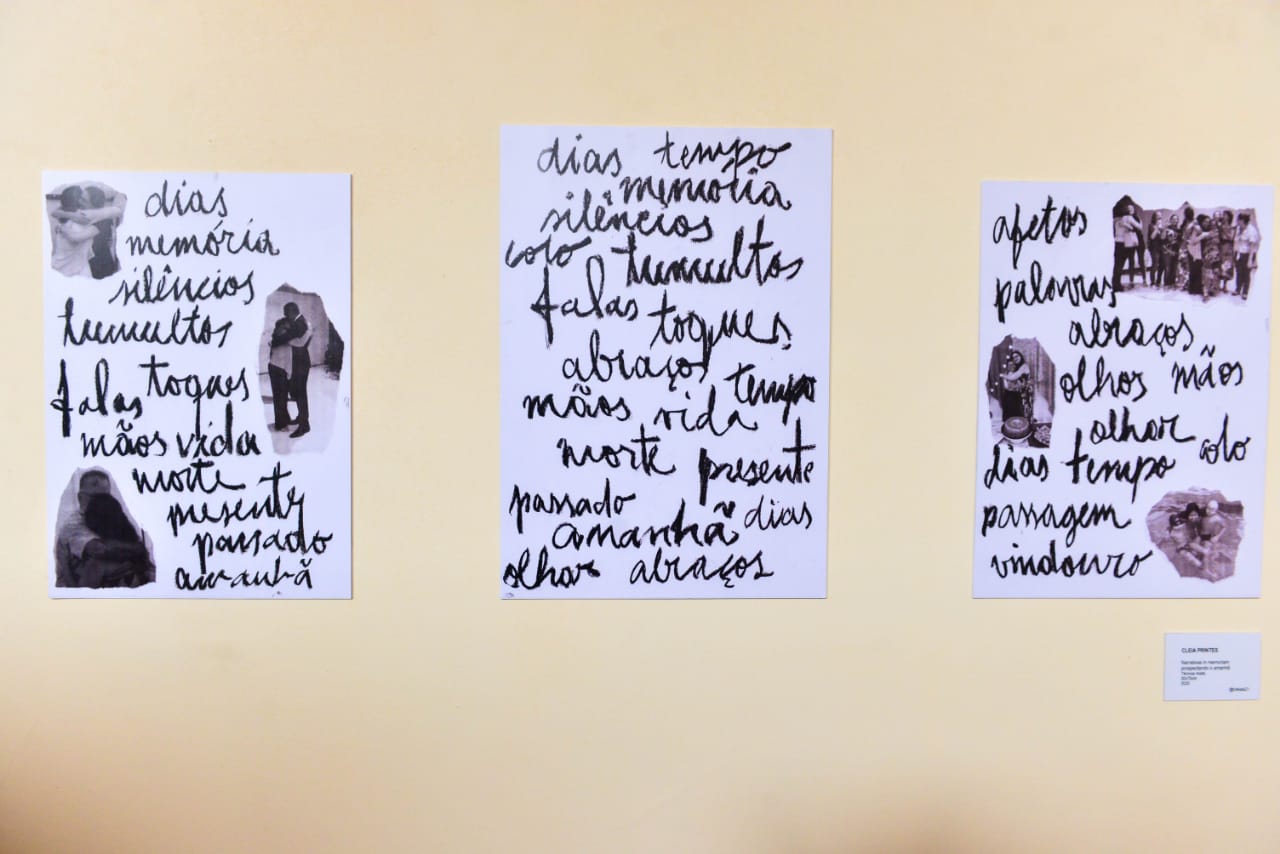 dias
memória
silêncios
tumultos
falas toques
mãos vida
morte
presente
passado
amanhã
dias tempo
memória
silêncios
colo tumultos
falas toques
abraços
mãos vida tempo
morte presente
passado
amanhã dias
olhar abraços
afetos
palavras
abraços
olhos mãos
olhar colo
dias tempo
passagem
vindouro
CLEIA PRINTES
Narrativas in memoriam
prospectando o amanhã
Técnica mista